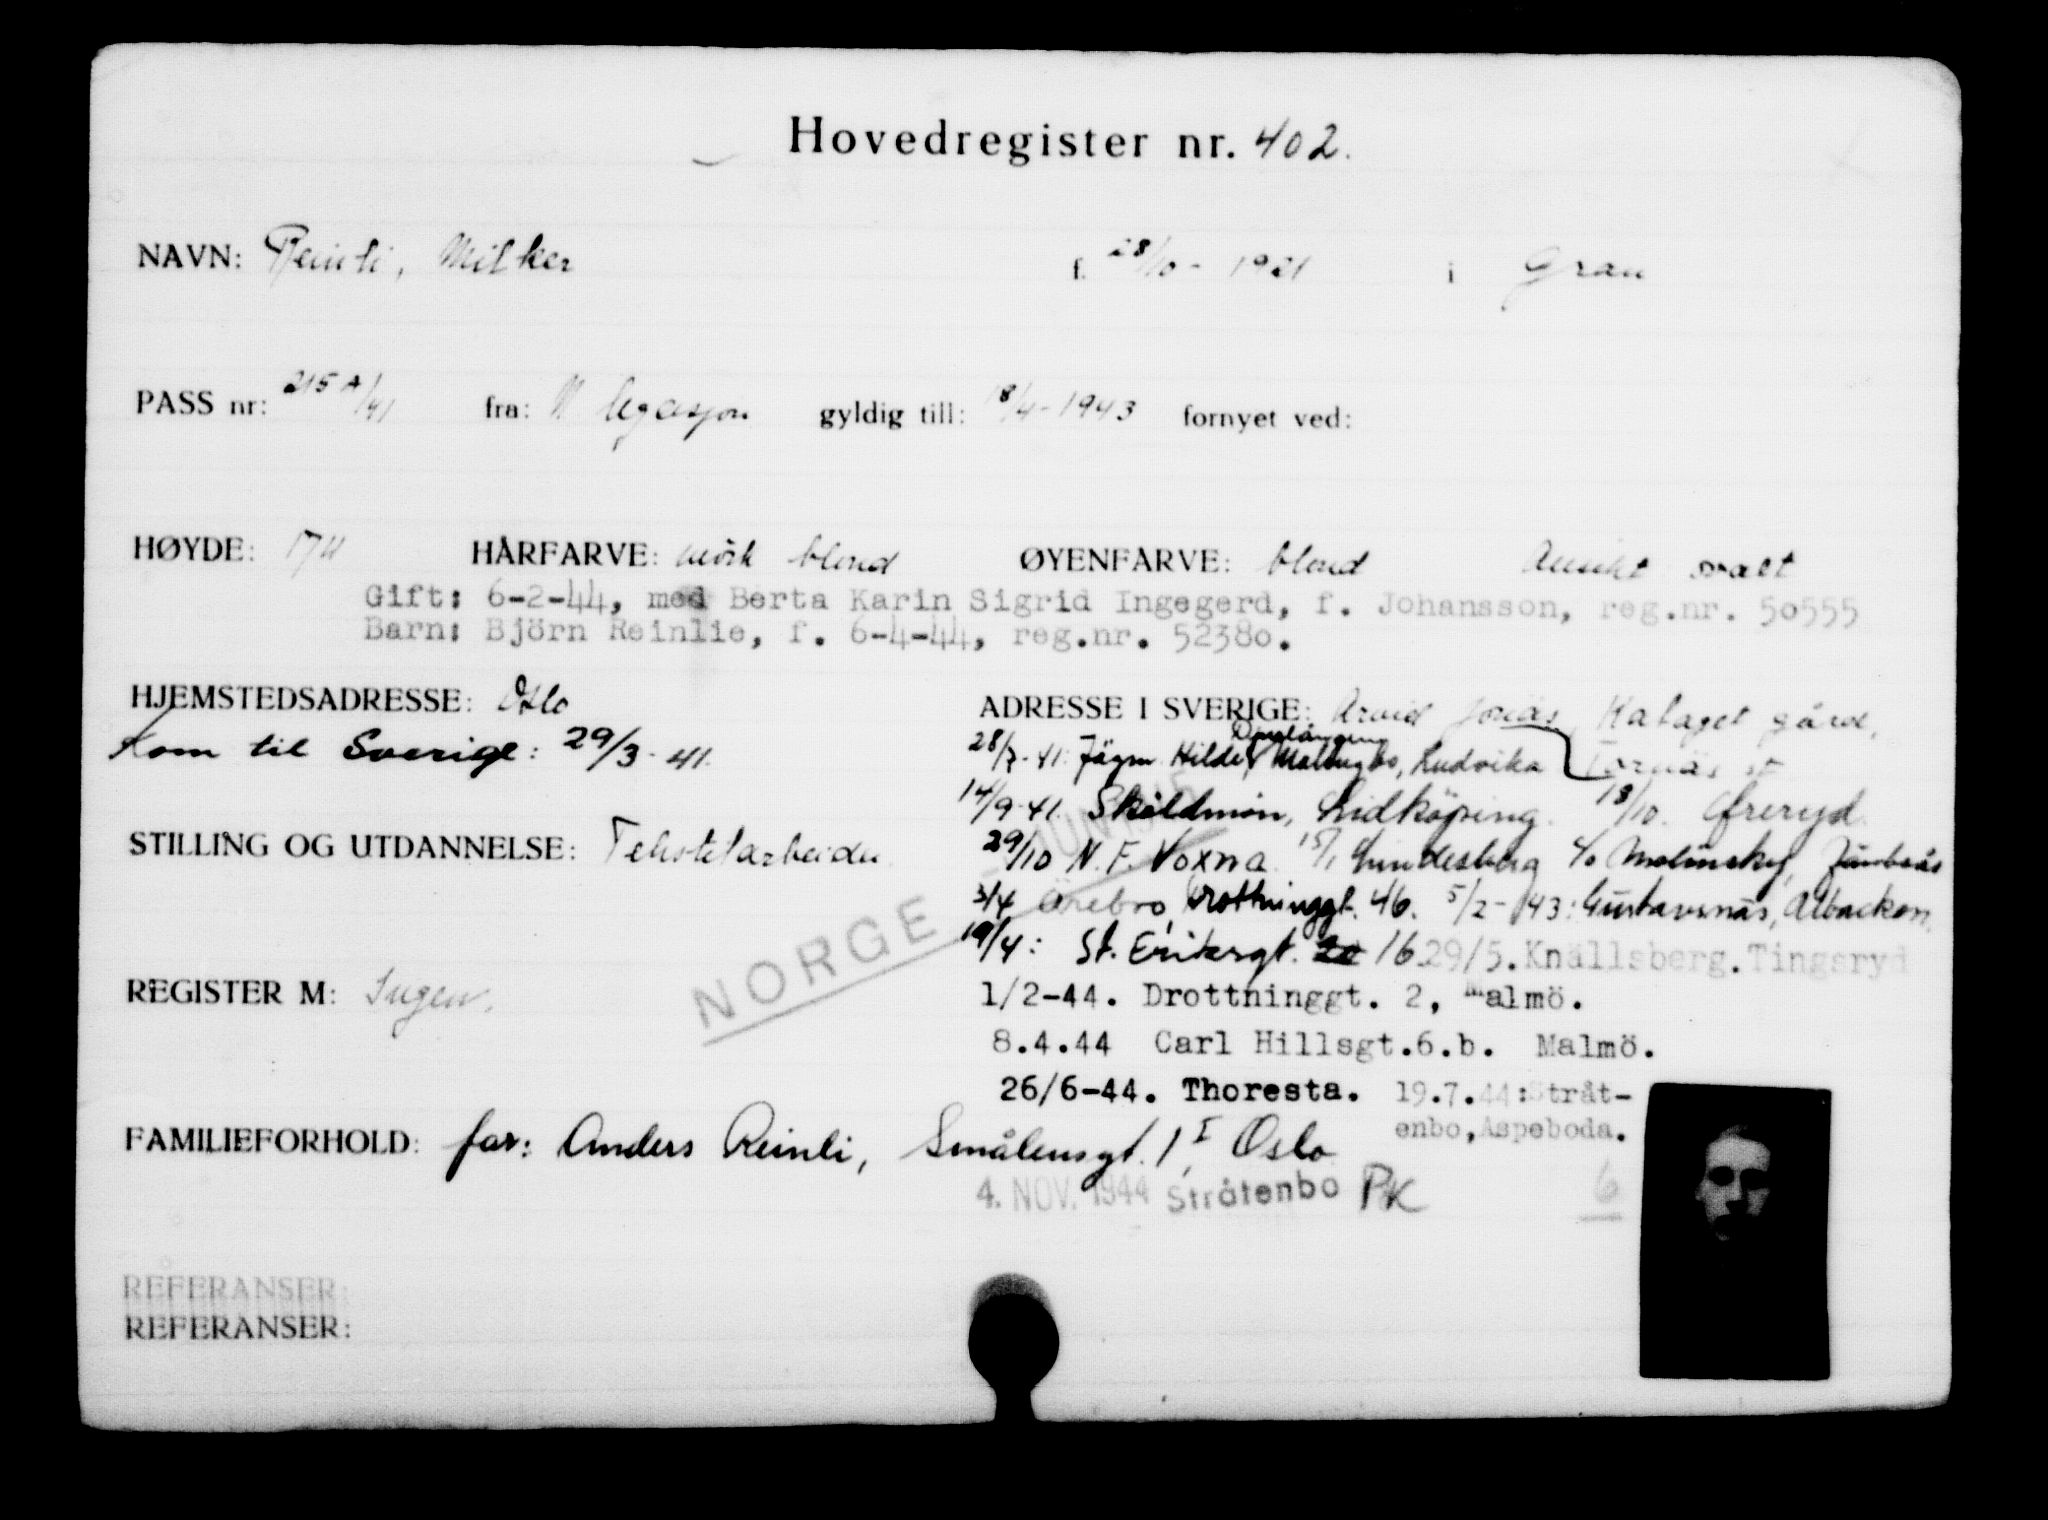 Hovedregister nr. 402.
NAVN: Reinli, Milker f. 28/10 - 1921 i Gran
PASS nr: 215 A/41 fra: N legasjon gyldig till: 18/4 - 1943 fornyet ved:
HØYDE: 174 HÅRFARVE: mörk blond ØYENFARVE: blond Ansikt ovalt
Gift: 6-2-44, med Berta Karin Sigrid Ingegerd, f. Johansson, reg.nr. 50555
Barn: Björn Reinlie, f. 6-4-44, reg.nr. 52380.
HJEMSTEDSADRESSE: Oslo
Kom til Sverige: 29/3 - 41.
ADRESSE I SVERIGE: Arvid Jonäs, gård,
28/7-41: Jägm. Malingsbo, Ludvika
14/9-41. Sköldmön, Lidköping. 18/10.
STILLING OG UTDANNELSE:
29/10 N.F. Voxna 15/1 Lindesberg c/o Molinsky,
3/4 Örebro, Drottninggt. 46. 5/2-43: Gustavsnäs, Älbacken.
19/4: St. Eriksgt. 16 29/5. Knällsberg. Tingsryd
NORGE
REGISTER M: Ingen.
1/2-44. Drottninggt. 2, Malmö.
8.4.44 Carl Hillsgt.6.b. Malmö.
26/6-44. Thoresta. 19.7.44: Stråt-
enbo, Aspeboda.
FAMILIEFORHOLD: far: Anders Reinli, Smålensgt. 1, I Oslo
4. NOV. 1944 Stråtenbo PK 6
REFERANSER:
REFERANSER: